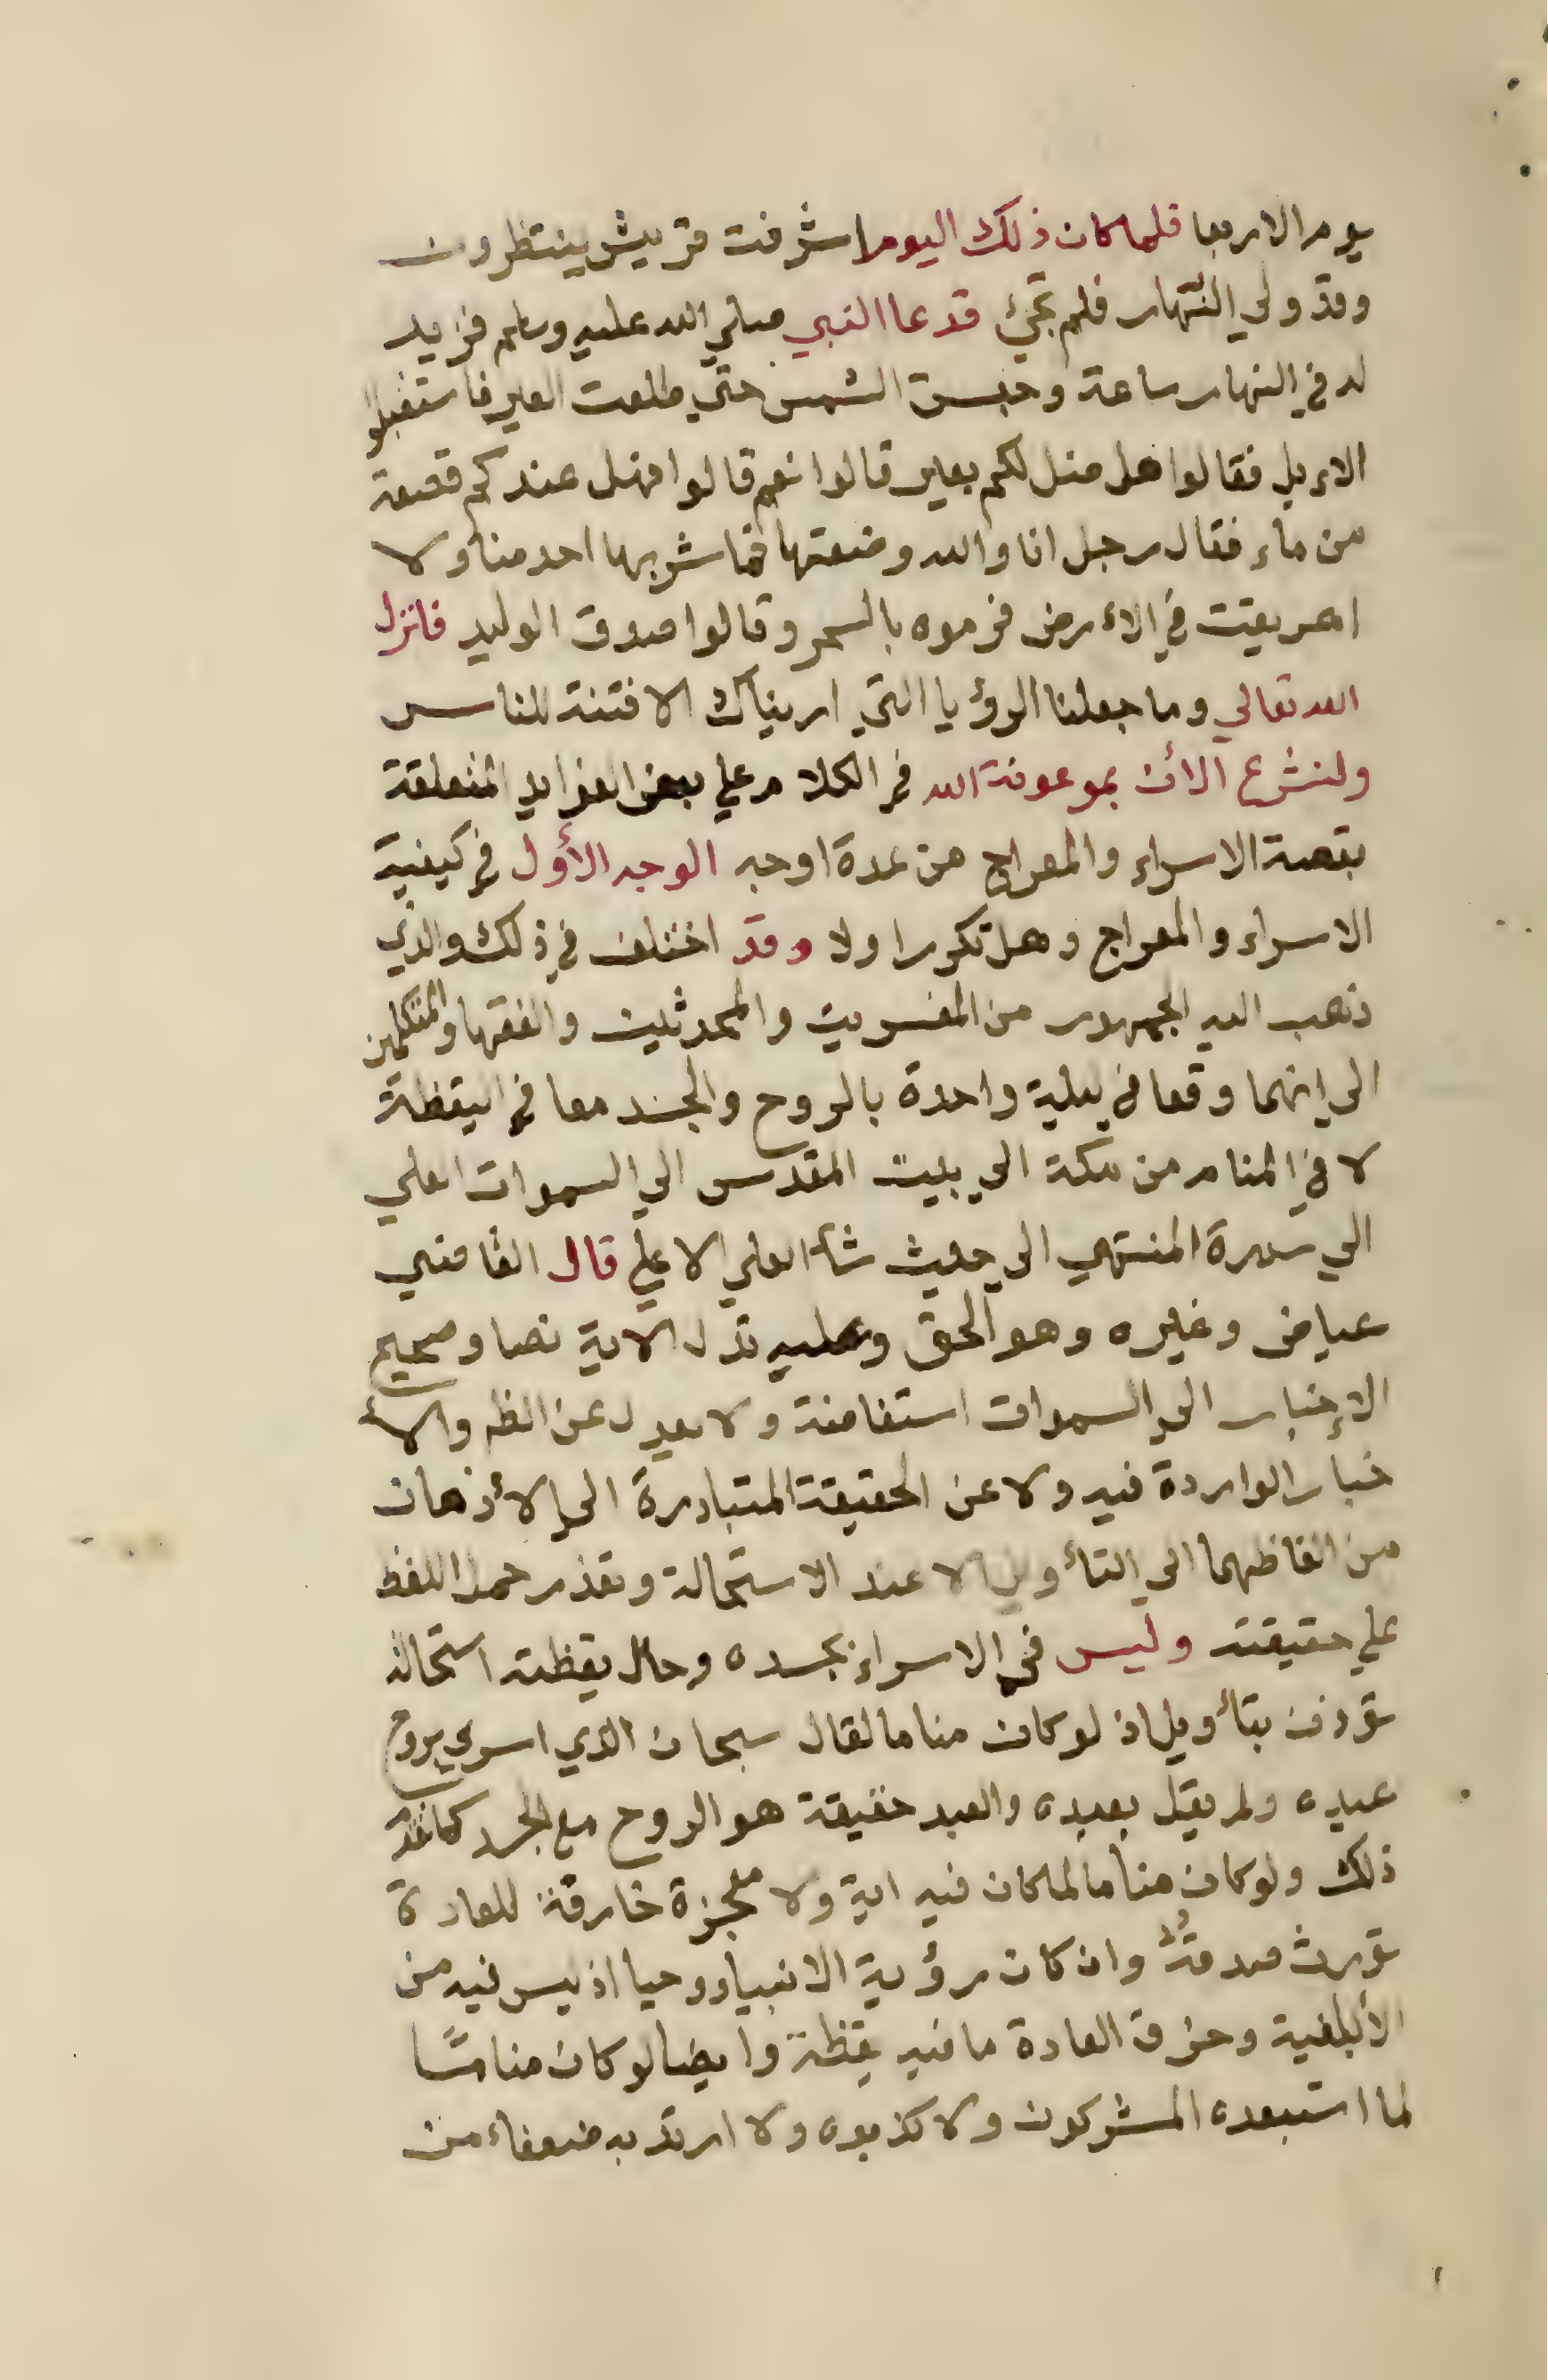 يوم الاربعا فلما كان ذلك اليوم اشرفت قريش ينتظرون
وقد ولي النهار فلم تجئ فدعا النبي صلي الله عليه وسلم فزيد
له في النهار ساعة وحبست الشمس حتي طلعت العير فاستقبلوا
الابل فقالوا هل ضل لكم بعير قالوا نعم قالوا فهل عندكم قصعة
من ماء فقال رجل انا والله وضعتها فما شربها احد منا ولا
اهريقت في الأرض فرموه بالسحر وقالوا صدق الوليد فانزل
الله تعالي وما جعلنا الرؤيا التي اريناك الا فتنة للناس
ولنشرع الأن بموعونة الله في الكلام علي بعض الفوايد المتعلقة
بقصة الاسراء والمعراج من عدة اوجه الوجه الأول في كيفية
الاسراء والمعراج وهل تكررا ولا وقد اختلف في ذلك والذي
ذهب اليه الجمهور من المفسرين والمحدثين والفقها والمتكلمين
الي انهما وقعا في ليلة واحدة بالروح والجسد معا في اليقظة
لا في المنام من مكة الي بيت المقدس الي السموات العلي
الي سدرة المنتهي الي حيث شاء العلي الاعلي قال القاضي
عياض وغيره وهو الحق وعليه تدل الاية نصا وصحيح
الإخبار الي السموات استفاضة ولا يعدل عن الظ والا
خبار الواردة فيه ولا عن الحقيقة المتبادرة الي الأذهان
من الفاظهما الي التأويل الا عند الاستحالة وتعذر حمل اللفظ
علي حقيقته وليس في الاسراء بجسده وحال يقظته استحالة
تؤذن بتأويل اذ لو كان مناما لقال سبحان الذي اسري بروح
عبده ولم يقل بعبده والعبد حقيقة هو الروح مع الجسد كما تقدم
ذلك ولو كان مناما لما كان فيه اية ولا معجزة خارقة للعادة
تورث صدقهُ وان كان رؤية الانبياء وحيا اذ ليس فيه من
الأبلغية وخرق العادة ما فيه يقظة وايضا لو كان مناما
لما استبعده المشركون ولا كذبوه ولا ارتد به ضعفاء من